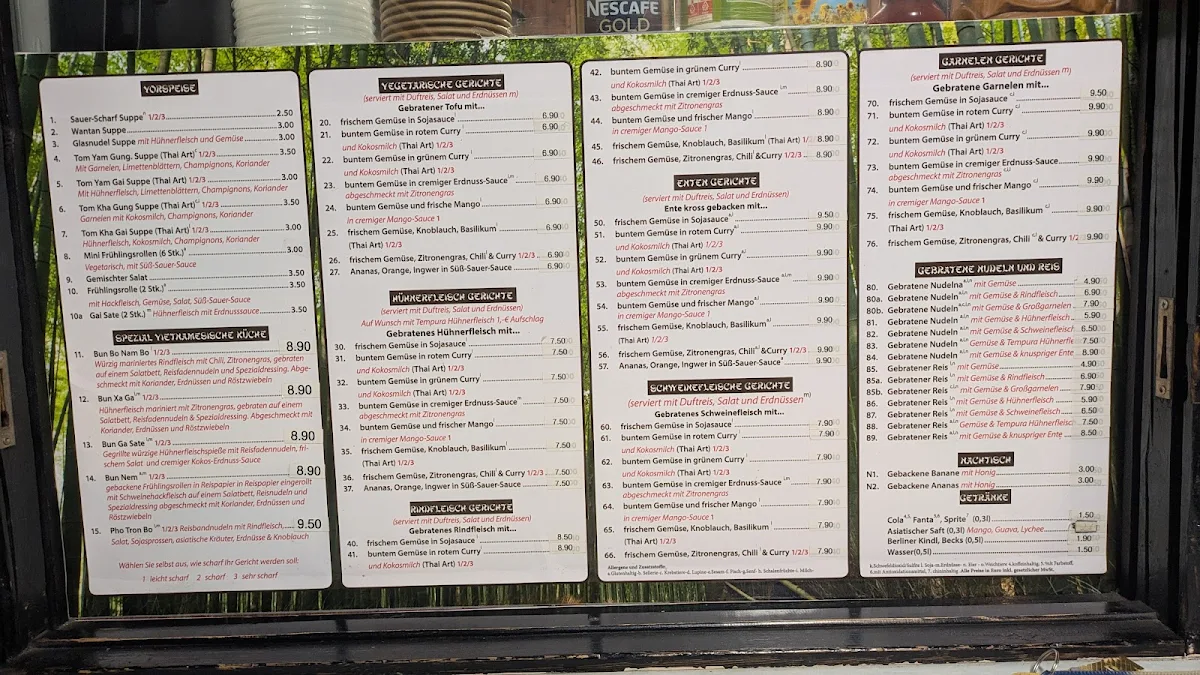 NESCAFÉ
GOLD
VORSPEISE
1. Sauer-Scharf Suppe 1/2/3 2.50
2. Wantan Suppe 3.00
3. Glasnudel Suppe mit Hühnerfleisch und Gemüse 3.00
4. Tom Yam Gung. Suppe (Thai Art) 1/2/3 3.50
Mit Garnelen, Limettenblättern, Champignons, Koriander
5. Tom Yam Gai Suppe (Thai Art) 1/2/3 3.00
Mit Hühnerfleisch, Limettenblättern, Champignons, Koriander
6. Tom Kha Gung Suppe (Thai Art) 1/2/3 3.50
Garnelen mit Kokosmilch, Champignons, Koriander
7. Tom Kha Gai Suppe (Thai Art) 1/2/3 3.00
Hühnerfleisch, Kokosmilch, Champignons, Koriander
8. Mini Frühlingsrollen (6 Stk.) 3.00
Vegetarisch, mit Süß-Sauer-Sauce
9. Gemischter Salat 3.50
10. Frühlingsrolle (2 Stk.) 3.50
mit Hackfleisch, Gemüse, Salat, Süß-Sauer-Sauce
10a Gai Sate (2 Stk.) mit Hühnerfleisch mit Erdnusssauce 3.50
SPEZIAL VIETNAMESISCHE KÜCHE
11. Bun Bo Nam Bo 1/2/3 8.90
Würzig mariniertes Rindfleisch mit Chili, Zitronengras, gebraten
auf einem Salatbett, Reisfadennudeln und Spezialdressing. Abge-
schmeckt mit Koriander, Erdnüssen und Röstzwiebeln
12. Bun Xa Ga 1/2/3 8.90
Hühnerfleisch mariniert mit Zitronengras, gebraten auf einem
Salatbett, Reisfadennudeln & Spezialdressing. Abgeschmeckt mit
Koriander, Erdnüssen und Röstzwiebeln
13. Bun Ga Sate 1/2/3 8.90
Gegrillte würzige Hühnerfleischspieße mit Reisfadennudeln, fri-
schem Salat und cremiger Kokos-Erdnuss-Sauce
14. Bun Nem 1/2/3 8.90
gebackene Frühlingsrollen in Reispapier in Reispapier eingerollt
mit Schweinehackfleisch auf einem Salatbett, Reisnudeln und
Spezialdressing abgeschmeckt mit Koriander, Erdnüssen und
Röstzwiebeln
15. Pho Tron Bo 1/2/3 Reisbandnudeln mit Rindfleisch, 9.50
Salat, Sojasprossen, asiatische Kräuter, Erdnüsse & Knoblauch
Wählen Sie selbst aus, wie scharf Ihr Gericht werden soll:
1 leicht scharf 2 scharf 3 sehr scharf
VEGETARISCHE GERICHTE
(serviert mit Duftreis, Salat und Erdnüssen m)
Gebratener Tofu mit...
20. frischem Gemüse in Sojasauce 6.90
21. buntem Gemüse in rotem Curry 6.90
und Kokosmilch (Thai Art) 1/2/3
22. buntem Gemüse in grünem Curry 6.90
und Kokosmilch (Thai Art) 1/2/3
23. buntem Gemüse in cremiger Erdnuss-Sauce 6.90
abgeschmeckt mit Zitronengras
24. buntem Gemüse und frische Mango 6.90
in cremiger Mango-Sauce 1
25. frischem Gemüse, Knoblauch, Basilikum 6.90
(Thai Art) 1/2/3
26. frischem Gemüse, Zitronengras, Chili & Curry 1/2/3 6.90
27. Ananas, Orange, Ingwer in Süß-Sauer-Sauce 6.90
HÜHNERFLEISCH GERICHTE
(serviert mit Duftreis, Salat und Erdnüssen)
Auf Wunsch mit Tempura Hühnerfleisch 1,-€ Aufschlag
Gebratenes Hühnerfleisch mit...
30. frischem Gemüse in Sojasauce 7.50
31. buntem Gemüse in rotem Curry 7.50
und Kokosmilch (Thai Art) 1/2/3
32. buntem Gemüse in grünem Curry 7.50
und Kokosmilch (Thai Art) 1/2/3
33. buntem Gemüse in cremiger Erdnuss-Sauce 7.50
abgeschmeckt mit Zitronengras
34. buntem Gemüse und frischer Mango 7.50
in cremiger Mango-Sauce 1
35. frischem Gemüse, Knoblauch, Basilikum 7.50
(Thai Art) 1/2/3
36. frischem Gemüse, Zitronengras, Chili & Curry 1/2/3 7.50
37. Ananas, Orange, Ingwer in Süß-Sauer-Sauce 7.50
RINDFLEISCH GERICHTE
(serviert mit Duftreis, Salat und Erdnüssen)
Gebratenes Rindfleisch mit...
40. frischem Gemüse in Sojasauce 8.50
41. buntem Gemüse in rotem Curry 8.90
und Kokosmilch (Thai Art) 1/2/3
42. buntem Gemüse in grünem Curry 8.90
und Kokosmilch (Thai Art) 1/2/3
43. buntem Gemüse in cremiger Erdnuss-Sauce 8.90
abgeschmeckt mit Zitronengras
44. buntem Gemüse und frischer Mango 8.90
in cremiger Mango-Sauce 1
45. frischem Gemüse, Knoblauch, Basilikum (Thai Art) 1/ 8.90
46. frischem Gemüse, Zitronengras, Chili & Curry 1/2/3 8.90
ENTEN GERICHTE
(serviert mit Duftreis, Salat und Erdnüssen)
Ente kross gebacken mit...
50. frischem Gemüse in Sojasauce 9.50
51. buntem Gemüse in rotem Curry 9.90
und Kokosmilch (Thai Art) 1/2/3
52. buntem Gemüse in grünem Curry 9.90
und Kokosmilch (Thai Art) 1/2/3
53. buntem Gemüse in cremiger Erdnuss-Sauce 9.90
abgeschmeckt mit Zitronengras
54. buntem Gemüse und frischer Mango 9.90
in cremiger Mango-Sauce 1
55. frischem Gemüse, Knoblauch, Basilikum 9.90
(Thai Art) 1/2/3
56. frischem Gemüse, Zitronengras, Chili & Curry 1/2/3 9.90
57. Ananas, Orange, Ingwer in Süß-Sauer-Sauce 9.90
SCHWEINEFLEISCH GERICHTE
(serviert mit Duftreis, Salat und Erdnüssen m)
Gebratenes Schweinefleisch mit...
60. frischem Gemüse in Sojasauce 7.90
61. buntem Gemüse in rotem Curry 7.90
und Kokosmilch (Thai Art) 1/2/3
62. buntem Gemüse in grünem Curry 7.90
und Kokosmilch (Thai Art) 1/2/3
63. buntem Gemüse in cremiger Erdnuss-Sauce 7.90
abgeschmeckt mit Zitronengras
64. buntem Gemüse und frischer Mango 7.90
in cremiger Mango-Sauce 1
65. frischem Gemüse, Knoblauch, Basilikum 7.90
(Thai Art) 1/2/3
66. frischem Gemüse, Zitronengras, Chili & Curry 1/2/3 7.90
Allergene und Zusatzstoffe:
GARNELEN GERICHTE
(serviert mit Duftreis, Salat und Erdnüssen m)
Gebratene Garnelen mit...
70. frischem Gemüse in Sojasauce 9.50
71. buntem Gemüse in rotem Curry 9.90
und Kokosmilch (Thai Art) 1/2/3
72. buntem Gemüse in grünem Curry 9.90
und Kokosmilch (Thai Art) 1/2/3
73. buntem Gemüse in cremiger Erdnuss-Sauce 9.90
abgeschmeckt mit Zitronengras
74. buntem Gemüse und frischer Mango 9.90
in cremiger Mango-Sauce 1
75. frischem Gemüse, Knoblauch, Basilikum 9.90
(Thai Art) 1/2/3
76. frischem Gemüse, Zitronengras, Chili & Curry 1/2 9.90
GEBRATENE NUDELN UND REIS
80. Gebratene Nudeln mit Gemüse 4.90
80a. Gebratene Nudeln mit Gemüse & Rindfleisch 6.90
80b. Gebratene Nudeln mit Gemüse & Großgarnelen 7.90
81. Gebratene Nudeln mit Gemüse & Hühnerfleisch 5.90
82. Gebratene Nudeln mit Gemüse & Schweinefleisch 6.50
83. Gebratene Nudeln Gemüse & Tempura Hühnerfle 7.50
84. Gebratene Nudeln mit Gemüse & knuspriger Ente 8.90
85. Gebratener Reis mit Gemüse 4.90
85a. Gebratener Reis mit Gemüse & Rindfleisch 6.90
85b. Gebratener Reis mit Gemüse & Großgarnelen 7.90
86. Gebratener Reis mit Gemüse & Hühnerfleisch 5.90
87. Gebratener Reis mit Gemüse & Schweinefleisch 6.50
88. Gebratener Reis Gemüse & Tempura Hühnerfleisch 7.50
89. Gebratener Reis mit Gemüse & knuspriger Ente 8.50
NACHTISCH
N1. Gebackene Banane mit Honig 3.00
N2. Gebackene Ananas mit Honig 3.00
GETRÄNKE
Cola, Fanta, Sprite (0,3l) 1.50
Asiatischer Saft (0,3l) Mango, Guava, Lychee
Berliner Kindl, Becks (0,5l) 1.90
Wasser(0,5l) 1.50